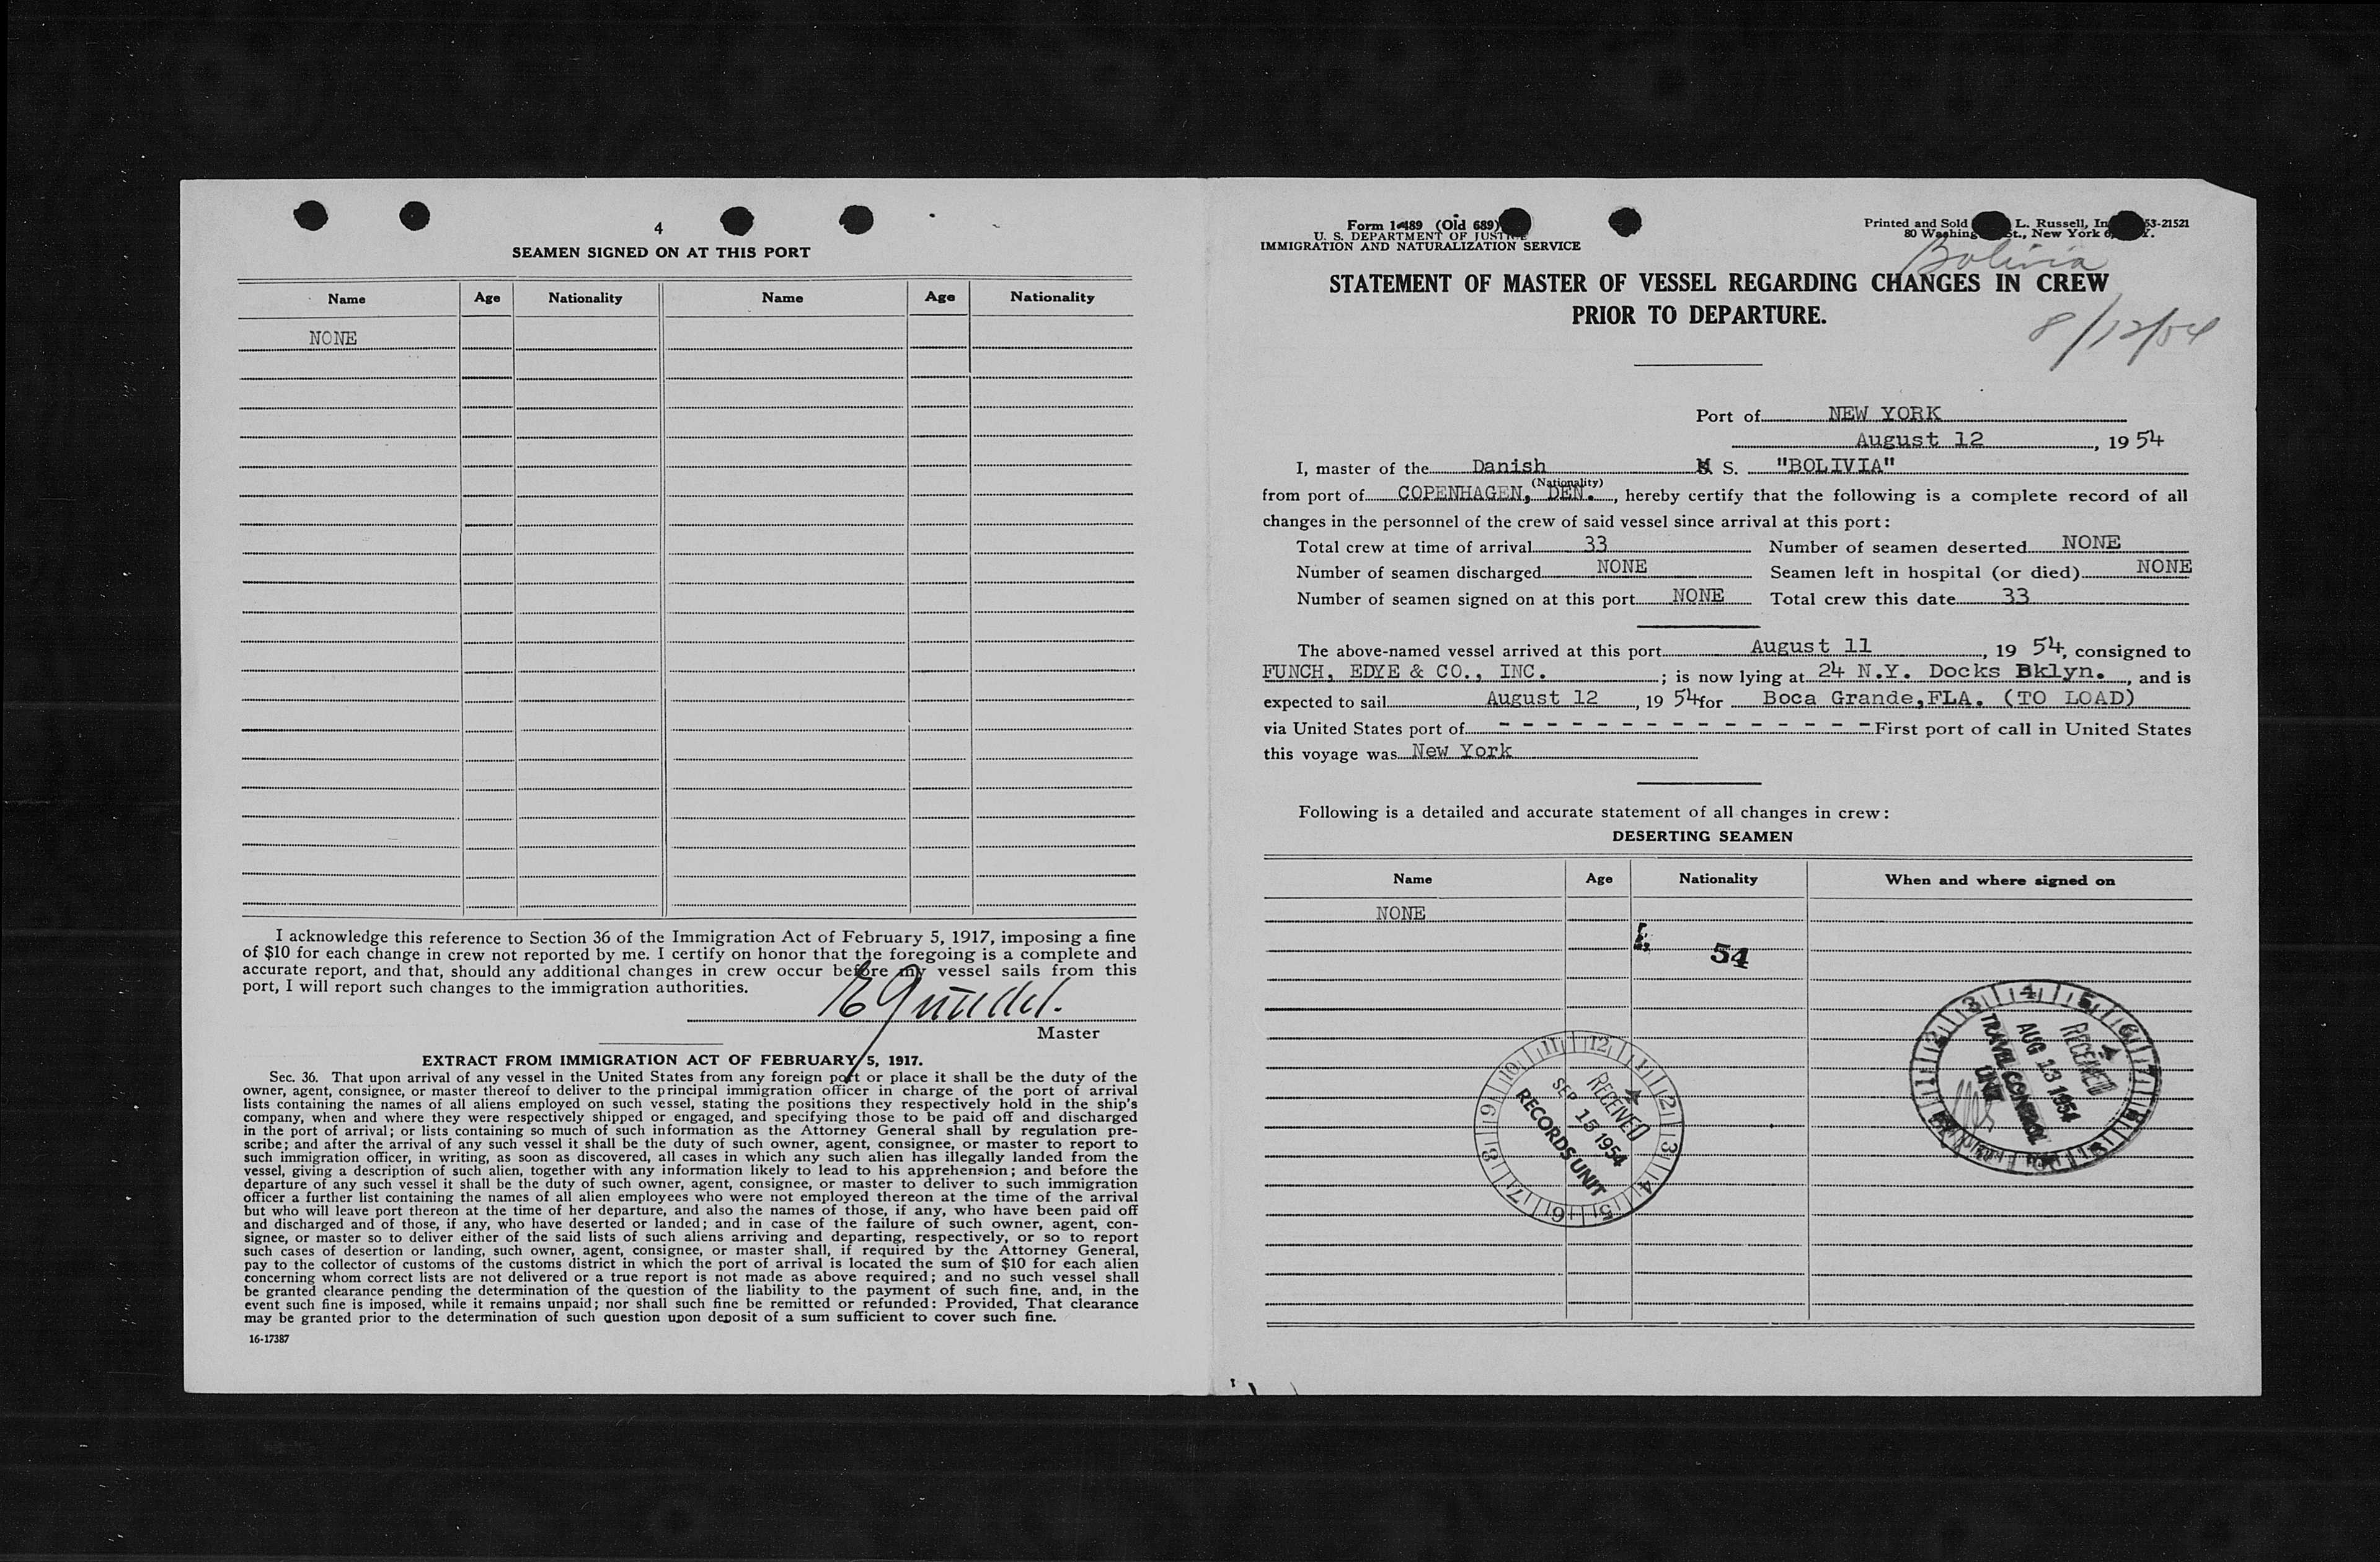 4
SEAMEN SIGNED ON AT THIS PORT
Name Age Nationality Name Age Nationality
NONE
I acknowledge this reference to Section 36 of the Immigration Act of February 5, 1917, imposing a fine
of $10 for each change in crew not reported by me. I certify on honor that the foregoing is a complete and
accurate report, and that, should any additional changes in crew occur before my vessel sails from this
port, I will report such changes to the immigration authorities.
Master
EXTRACT FROM IMMIGRATION ACT OF FEBRUARY 5, 1917.
Sec. 36. That upon arrival of any vessel in the United States from any foreign port or place it shall be the duty of the
owner, agent, consignee, or master thereof to deliver to the principal immigration officer in charge of the port of arrival
lists containing the names of all aliens employed on such vessel, stating the positions they respectively hold in the ship's
company, when and where they were respectively shipped or engaged, and specifying those to be paid off and discharged
in the port of arrival; or lists containing so much of such information as the Attorney General shall by regulation pre-
scribe; and after the arrival of any such vessel it shall be the duty of such owner, agent, consignee, or master to report to
such immigration officer, in writing, as soon as discovered, all cases in which any such alien has illegally landed from the
vessel, giving a description of such alien, together with any information likely to lead to his apprehension; and before the
departure of any such vessel it shall be the duty of such owner, agent, consignee, or master to deliver to such immigration
officer a further list containing the names of all alien employees who were not employed thereon at the time of the arrival
but who will leave port thereon at the time of her departure, and also the names of those, if any, who have been paid off
and discharged and of those, if any, who have deserted or landed; and in case of the failure of such owner, agent, con-
signee, or master so to deliver either of the said lists of such aliens arriving and departing, respectively, or so to report
such cases of desertion or landing, such owner, agent, consignee, or master shall, if required by the Attorney General,
pay to the collector of customs of the customs district in which the port of arrival is located the sum of $10 for each alien
concerning whom correct lists are not delivered or a true report is not made as above required; and no such vessel shall
be granted clearance pending the determination of the question of the liability to the payment of such fine, and, in the
event such fine is imposed, while it remains unpaid; nor shall such fine be remitted or refunded: Provided, That clearance
may be granted prior to the determination of such question upon deposit of a sum sufficient to cover such fine.
16-17387
Form 1-489 (Old 689)
U. S. DEPARTMENT OF JUSTICE
IMMIGRATION AND NATURALIZATION SERVICE
Printed and Sold L. Russell, In 53-21521
80 Washing St., New York 6, Y.
Bolivia
STATEMENT OF MASTER OF VESSEL REGARDING CHANGES IN CREW
PRIOR TO DEPARTURE.
8/12/54
Port of NEW YORK
August 12, 1954
I, master of the Danish M S. "BOLIVIA"
(Nationality)
from port of COPENHAGEN, DEN., hereby certify that the following is a complete record of all
changes in the personnel of the crew of said vessel since arrival at this port:
Total crew at time of arrival 33 Number of seamen deserted NONE
Number of seamen discharged NONE Seamen left in hospital (or died) NONE
Number of seamen signed on at this port NONE Total crew this date 33
The above-named vessel arrived at this port August 11, 19 54, consigned to
FUNCH, EDYE & CO., INC.; is now lying at 24 N.Y. Docks Bklyn., and is
expected to sail August 12, 19 54 for Boca Grande, FLA. (TO LOAD)
via United States port of - - - - - - - - - - - - - - - - First port of call in United States
this voyage was New York
Following is a detailed and accurate statement of all changes in crew:
DESERTING SEAMEN
Name Age Nationality When and where signed on
NONE
54
RECEIVED
AUG 13 1954
TRAVEL CONTROL
UNIT
RECEIVED
SEP 13 1954
RECORDS UNIT